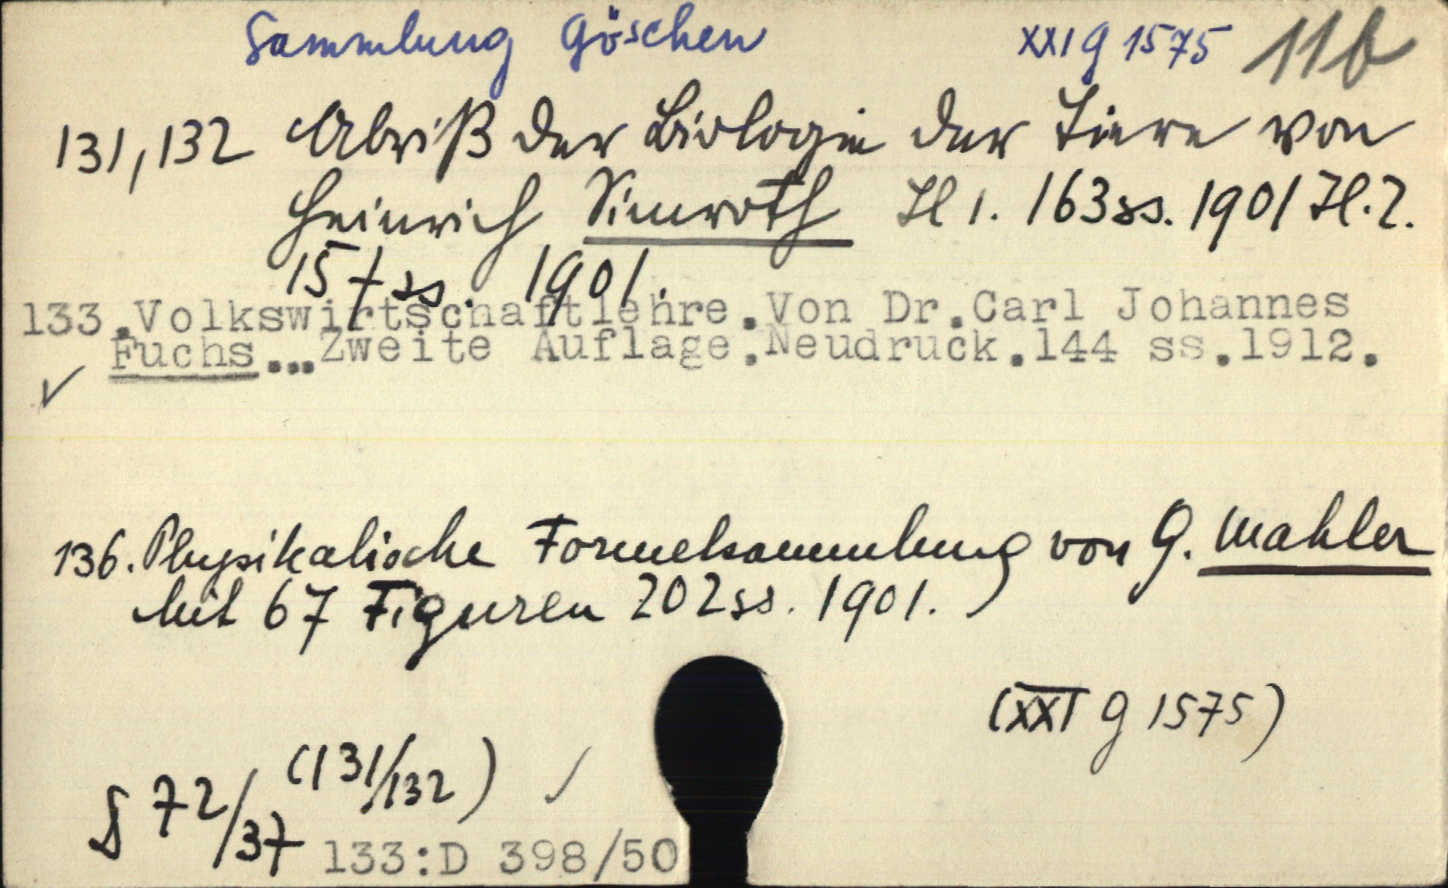 Sammlung Göschen XXI g 1575 11b
131, 132 Abriß der Biologie der Tiere von
Heinrich Simroth Tl 1. 163 ss. 1901 Tl. 2.
157 ss. 1901.
133.Volkswirtschaftlehre.Von Dr.Carl Johannes
Fuchs...Zweite Auflage.Neudruck.144 ss.1912.
136. Physikalische Formelsammlung von G. Mahler
Mit 67 Figuren 202 ss. 1901.
(XXI g 1575)
(131/132)
72/37
133:D 398/50